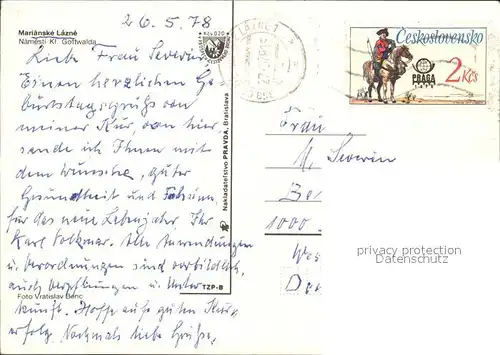 26.5.78
Mariánské Lázně
Náměstí Kl. Gottwalda
Kčs 0,20
Liebe Frau Severin
Einen herzlichen Ge-
burtstagsgruß von
meiner Kur, von hier,
sende ich Ihnen mit
dem Wunsche, guter
Gesundheit und
für das neue Lebensjahr Ihr
Karl Volkmar. Alle Anwendungen
u. Verordnungen sind vorbildlich,
auch Verpflegung u. Unter
kunft. Hoffe auf guten Kur
erfolg. Nochmals liebe Grüße.
Foto Vratislav Benc
Nakladatelstvo PRAVDA, Bratislava
TZP-B
Československo
PRAGA
1978
2 Kčs
Frau
M. Severin
1000
privacy protection
Datenschutz